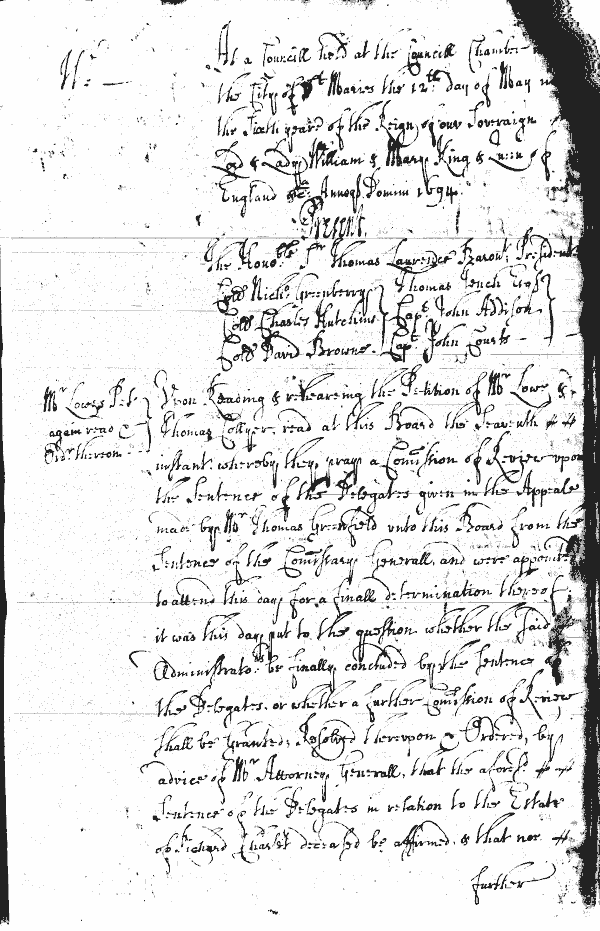 At a Councill held at the Councill Chamber
the City of St Maries the 12th day of May
the Sixth yeare of the Reign of our Soveraign
Lord & Lady William & Mary King & Queen of
England &c: Annoq Domini 1694.
Present.
The Honoble Sr Thomas Laurence Baront: President
Coll Nicho: Greenberry } Thomas Tench Esqr
Coll Charles Hutchins } Capt John Addison
Coll David Browne. Capt John Courts
Mr Lowes Pet.
again read &
Ordr thereon
Upon Reading & rehearing the Petition of Mr Lowe &
Thomas Collyer, read at this Board the Seaventh
instant, whereby they pray a Comission of Review upon
the Sentence of the Delegates given in the Appeale
made by Mr Thomas Greenfield unto this Board from the
Sentence of the Comissary Generall, and were appointed
to attend this day for a finall determination thereof;
it was this day put to the question whether the said
Administrators be finally concluded by the Sentence of
the Delegates, or whether a further Comission of Review
shall be Granted; Resolved thereupon & Ordered, by
advice of Mr Attorney Generall, that the aforesd
Sentence of the Delegates in relation to the Estate
of Richard Charlet deceased be affirmed, & that noe
further